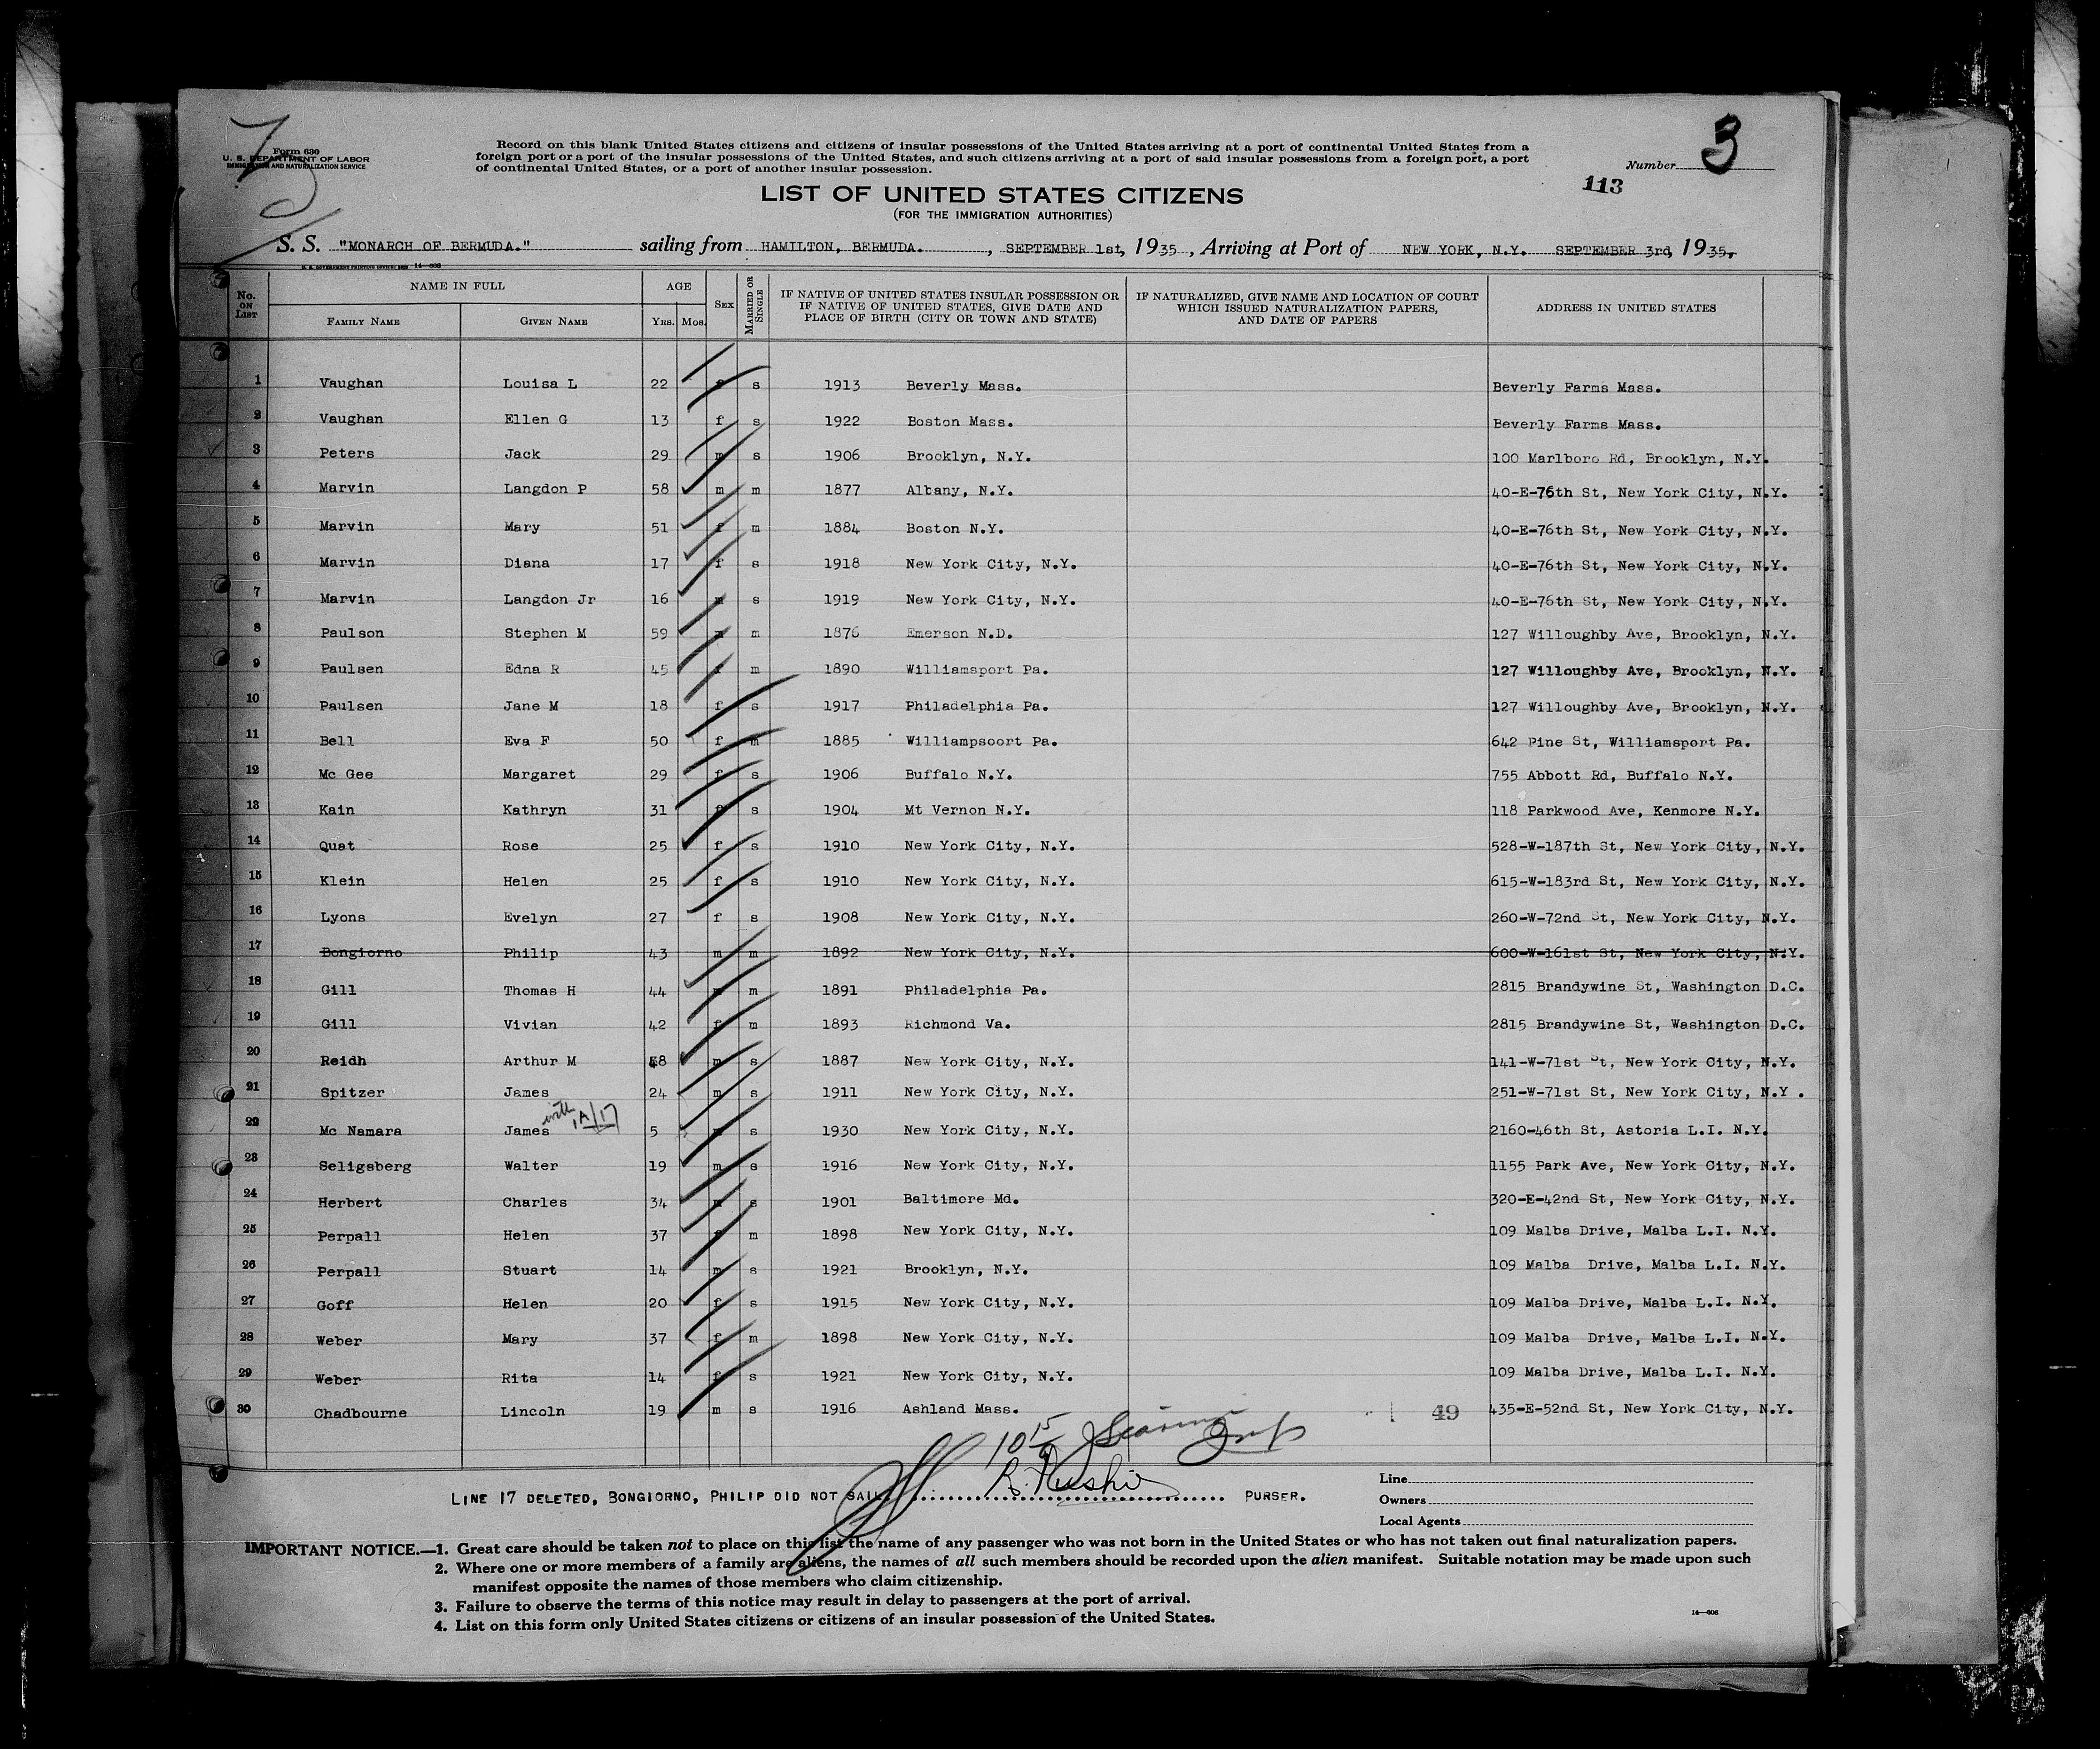 3
Form 630
U. S. DEPARTMENT OF LABOR
IMMIGRATION AND NATURALIZATION SERVICE
Record on this blank United States citizens and citizens of insular possessions of the United States arriving at a port of continental United States from a
foreign port or a port of the insular possessions of the United States, and such citizens arriving at a port of said insular possessions from a foreign port, a port
of continental United States, or a port of another insular possession.
Number 3
113
LIST OF UNITED STATES CITIZENS
(FOR THE IMMIGRATION AUTHORITIES)
S. S. "MONARCH OF BERMUDA." sailing from HAMILTON, BERMUDA. , SEPTEMBER 1st, 1935 , Arriving at Port of NEW YORK, N.Y. SEPTEMBER 3rd, 1935,
U. S. GOVERNMENT PRINTING OFFICE: 14—606
No. ON LIST NAME IN FULL FAMILY NAME GIVEN NAME AGE YRS. MOS. SEX MARRIED OR SINGLE IF NATIVE OF UNITED STATES INSULAR POSSESSION OR IF NATIVE OF UNITED STATES, GIVE DATE AND PLACE OF BIRTH (CITY OR TOWN AND STATE) IF NATURALIZED, GIVE NAME AND LOCATION OF COURT WHICH ISSUED NATURALIZATION PAPERS, AND DATE OF PAPERS ADDRESS IN UNITED STATES
1 Vaughan Louisa L 22 f s 1913 Beverly Mass. Beverly Farms Mass.
2 Vaughan Ellen G 13 f s 1922 Boston Mass. Beverly Farms Mass.
3 Peters Jack 29 m s 1906 Brooklyn, N.Y. 100 Marlboro Rd, Brooklyn, N.Y.
4 Marvin Langdon P 58 m m 1877 Albany, N.Y. 40-E-76th St, New York City, N.Y.
5 Marvin Mary 51 f m 1884 Boston N.Y. 40-E-76th St, New York City, N.Y.
6 Marvin Diana 17 f s 1918 New York City, N.Y. 40-E-76th St, New York City, N.Y.
7 Marvin Langdon Jr 16 m s 1919 New York City, N.Y. 40-E-76th St, New York City, N.Y.
8 Paulson Stephen M 59 m m 1876 Emerson N.D. 127 Willoughby Ave, Brooklyn, N.Y.
9 Paulsen Edna R 45 f m 1890 Williamsport Pa. 127 Willoughby Ave, Brooklyn, N.Y.
10 Paulsen Jane M 18 f s 1917 Philadelphia Pa. 127 Willoughby Ave, Brooklyn, N.Y.
11 Bell Eva F 50 f m 1885 Williampsoort Pa. 642 Pine St, Williamsport Pa.
12 Mc Gee Margaret 29 f s 1906 Buffalo N.Y. 755 Abbott Rd, Buffalo N.Y.
13 Kain Kathryn 31 f s 1904 Mt Vernon N.Y. 118 Parkwood Ave, Kenmore N.Y.
14 Quat Rose 25 f s 1910 New York City, N.Y. 528-W-187th St, New York City, N.Y.
15 Klein Helen 25 f s 1910 New York City, N.Y. 615-W-183rd St, New York City, N.Y.
16 Lyons Evelyn 27 f s 1908 New York City, N.Y. 260-W-72nd St, New York City, N.Y.
17 Bongiorno Philip 43 m m 1892 New York City, N.Y. 600-W-161st St, New York City, N.Y.
18 Gill Thomas H 44 m m 1891 Philadelphia Pa. 2815 Brandywine St, Washington D.C.
19 Gill Vivian 42 f m 1893 Richmond Va. 2815 Brandywine St, Washington D.C.
20 Reidh Arthur M 48 m s 1887 New York City, N.Y. 141-W-71st St, New York City, N.Y.
21 Spitzer James 24 m s 1911 New York City, N.Y. 251-W-71st St, New York City, N.Y .
with 1A/17
22 Mc Namara James 5 m s 1930 New York City, N.Y. 2160-46th St, Astoria L.I. N.Y.
23 Seligsberg Walter 19 m s 1916 New York City, N.Y. 1155 Park Ave, New York City, N.Y.
24 Herbert Charles 34 m s 1901 Baltimore Md. 320-E-42nd St, New York City, N.Y.
25 Perpall Helen 37 f m 1898 New York City, N.Y. 109 Malba Drive, Malba L.I. N.Y.
26 Perpall Stuart 14 m s 1921 Brooklyn, N.Y. 109 Malba Drive, Malba L.I. N.Y.
27 Goff Helen 20 f s 1915 New York City, N.Y. 109 Malba Drive, Malba L.I. N.Y.
28 Weber Mary 37 f m 1898 New York City, N.Y. 109 Malba Drive, Malba L.I. N.Y.
29 Weber Rita 14 f s 1921 New York City, N.Y. 109 Malba Drive, Malba L.I. N.Y.
30 Chadbourne Lincoln 19 m s 1916 Ashland Mass. 49 435-E-52nd St, New York City, N.Y.
LINE 17 DELETED, BONGIORNO, PHILIP DID NOT SAIL PURSER.
Line
Owners
Local Agents
IMPORTANT NOTICE.—1. Great care should be taken not to place on this list the name of any passenger who was not born in the United States or who has not taken out final naturalization papers.
2. Where one or more members of a family are aliens, the names of all such members should be recorded upon the alien manifest. Suitable notation may be made upon such
manifest opposite the names of those members who claim citizenship.
3. Failure to observe the terms of this notice may result in delay to passengers at the port of arrival.
4. List on this form only United States citizens or citizens of an insular possession of the United States.
14—606